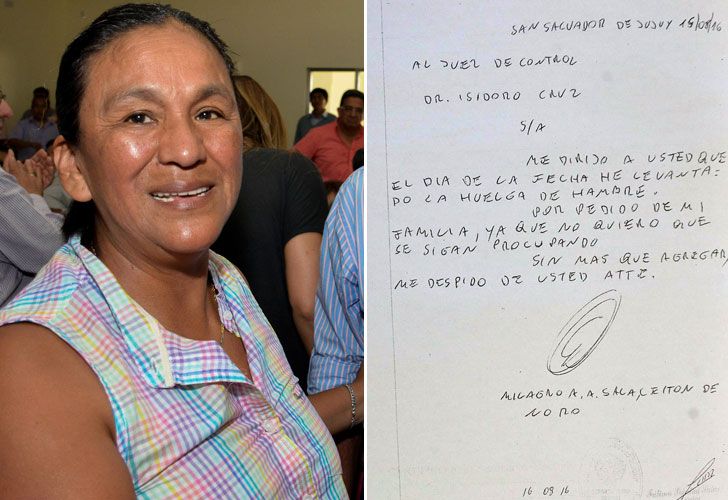 SAN SALVADOR DE JUJUY 15/09/16
AL JUEZ DE CONTROL
DR. ISIDORO CRUZ
S/A
ME DIRIJO A USTED QUE
EL DIA DE LA FECHA HE LEVANTA-
DO LA HUELGA DE HAMBRE.
POR PEDIDO DE MI
FAMILIA, YA QUE NO QUIERO QUE
SE SIGAN PROCUPANDO
SIN MAS QUE AGREGAR,
ME DESPIDO DE USTED ATTE.
MILAGRO A. A. SALA, LEITON DE
NORO
16 09 16